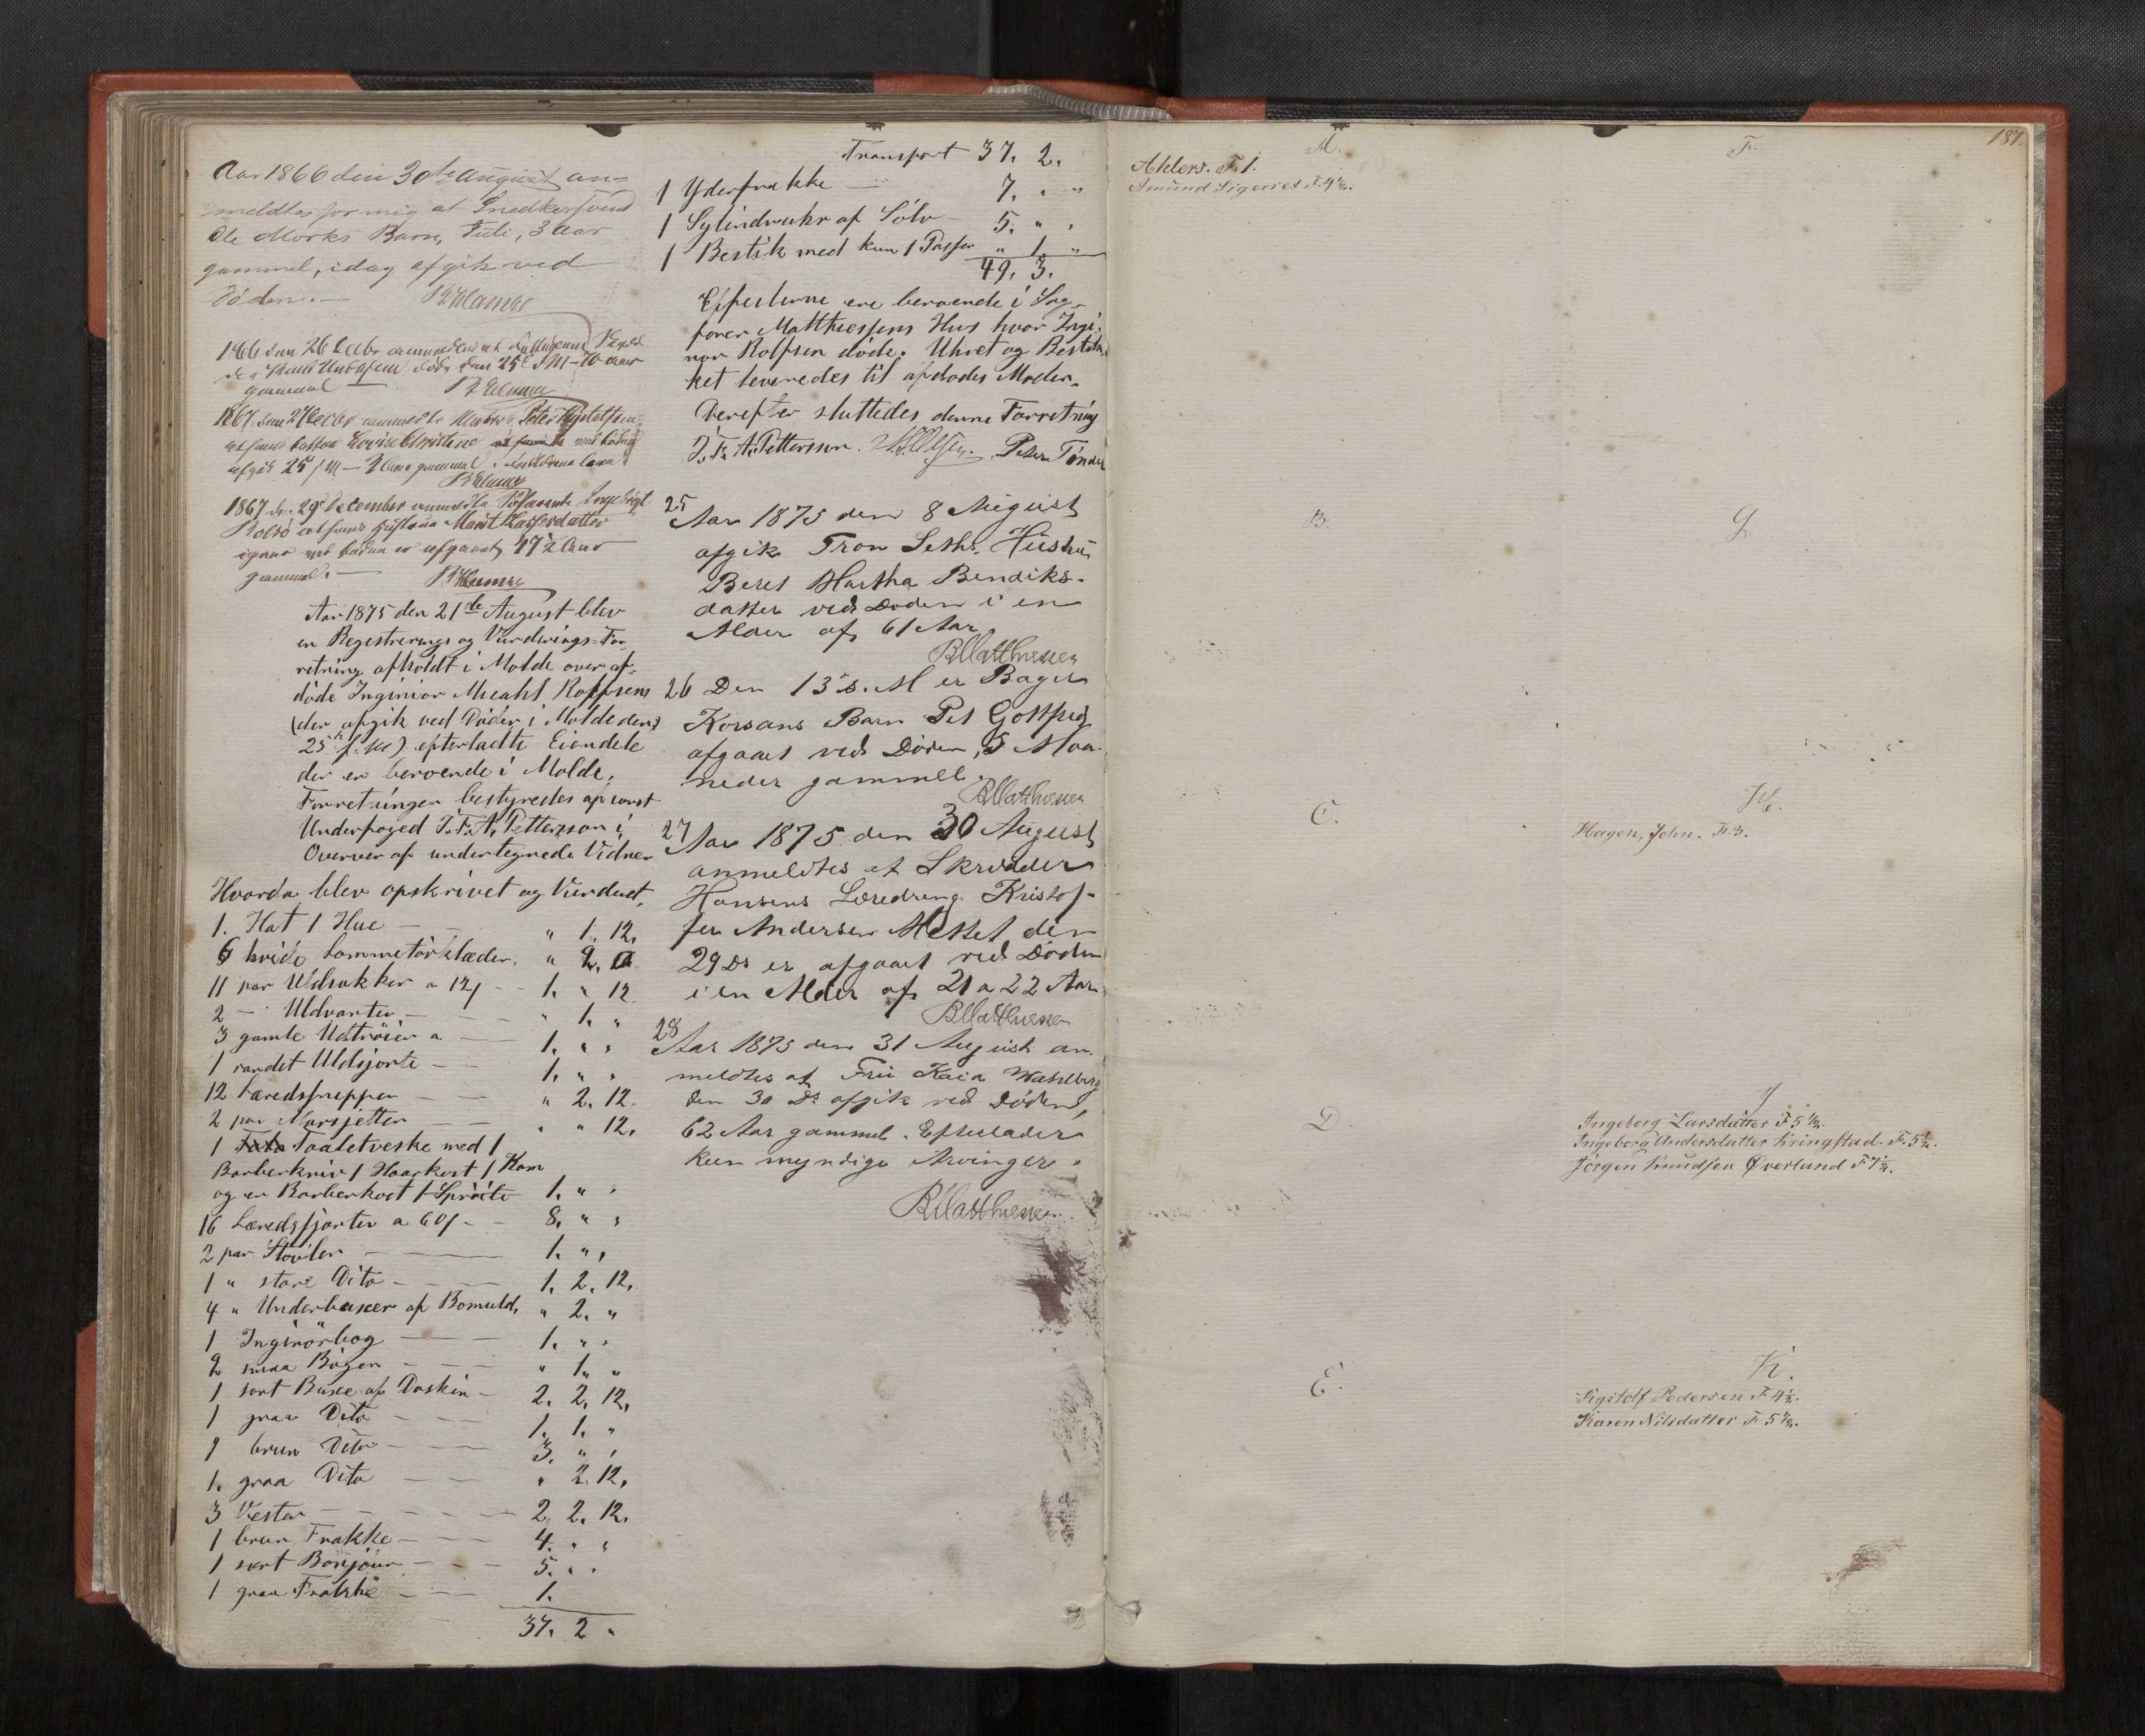 Aar 1866 den 30te August an=
meldtes for mig at Snedkersvend
Ole Mørks Barn, 3 Aar
gammel, idag afgik ved
Døden. —
1866 den 26 Decbr
døde den 25de d M — 70 aar
gammel
1867 den 27 Decbr anmeldte Peter
Lovise Christine ved Døden
afgik 25 d M — 2 Aar gammel.
1867 den 29 December anmeldte Ingebrigt
Bolsø at hans Marit Lassesdatter
igaar ved Døden er afgaaet 47½ Aar
gammel. —
Aar 1875 den 21de August blev
en Registrerings og Vurderings-For-
retning afholdt i Molde over af-
døde Inginiør Micahl Rolfsens
(der afgik ved Døden i Molde den
25 f. M) efterladte Eiendele
der er beroende i Molde.
Forretningen bestyredes af const
Underfoged J. F. A. Petterson i
Overvær af undertegnede Vidner
Hvorda blev opskrivet og Vurderet,
1. Hat 1 Hue — " 1. 12.
6 hvide Lommetørklæder. " 2.
11 par Uldsokker a 12 — 1. " 12
2 — Uldvanter — " 1. "
3 gamle Uldtrøier a — 1. " "
1 randet Uldsjorte — 1. " "
12 Læredssnipper — " 2. 12.
2 par Mansjetter — " " 12.
1 Toaletveske med 1
Barberkniv 1 Haarkost 1 Kam
og en Barberkost 1 Sprøite 1. " "
16 Læredssjorter a 60 — 8. " "
2 par Støvler — 1. " "
1 " store Dito — 1. 2. 12.
4 " Underbuxer af Bomuld, " 2. "
1 Inginörbog — 1. " "
2 smaa Bøger — " 1. "
1 sort Buxe af Doskin — 2. 2. 12.
1 graa Dito — 1. 1. "
1 brun Dito — 3. " "
1. graa Dito — " 2. 12.
3 Vester — 2. 2. 12.
1 brun Frakke — 4. " "
1 sort Bonjour — 5. " "
1 graa Frakke — 1.
37. 2 "
Transport 37. 2.
1 Yderfrakke — 7. " "
1 Sylinderuhr af Sølv — 5. " "
1 Bestik med kun 1 Passer " 1. "
49. 3.
Effecterne ere beroende i Sag-
fører Matthiessens Hus hvor Ingi-
niør Rolfsen døde. Uhret og Bestik-
ket leveredes til afdødes Moder.
Derefter sluttedes denne Forretning
J. F. A. Petterson. Peter Tönder
25
Aar 1875 den 8 August
afgik Tron Seths. Hustru
Beret Martha Bendiks-
datter ved Døden i en
Alder af 61 Aar.
RMatthiessen
26 Den 13 d. M er Bager
Korsans Barn Pet Gottfred
afgaaet ved Døden, 5 Maa-
neder gammell.
RMatthiessen
27
Aar 1875 den 30 August
anmeldtes at Skrædder
Hansens Læredreng Kristof-
fer Andersen den
29 Ds er afgaaet ved Døden
i en Alder af 21 a 22 Aar
RMatthiessen
28
Aar 1875 den 31 August an-
meldtes at Fru Kaia Wahlberg
den 30 Ds afgik ved Døden,
62 Aar gammel. Efterlader
kun myndige Arvinger.
RMatthiessen
187.
A.
Ahlers. F. 1.
Amund F. 4½.
B.
C.
D.
E.
F.
G.
H.
Hagen, John. F. 3.
J
Ingeborg Larsdatter F 5½.
Ingeborg Andersdatter Kringstad. F. 5½.
Jörgen Knudsen Øverland F 7½.
K.
Pedersen F. 4½.
Karen Nilsdatter F. 5½.